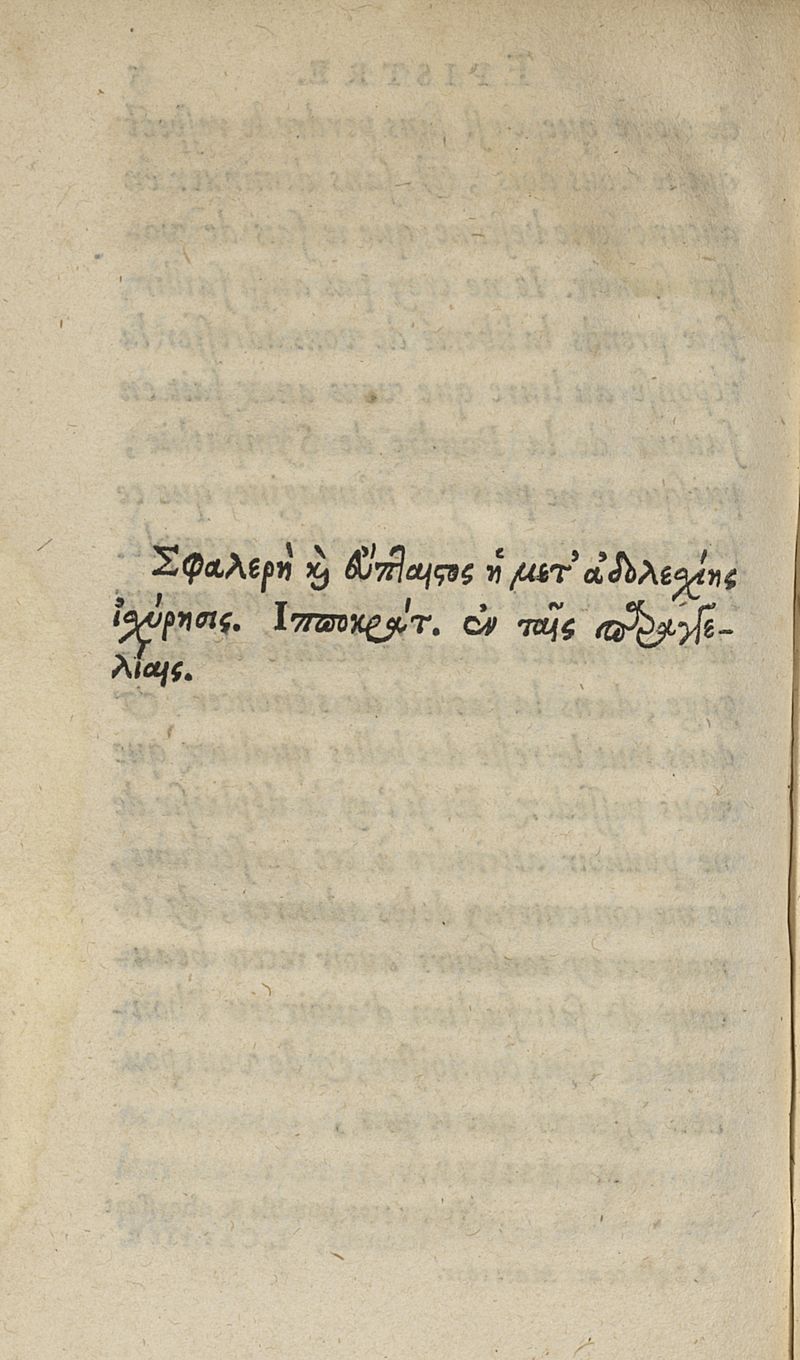 Σφαλερὴ ϗ̀ εὔπταιϛος ἡ μετ᾽ ἀδολεσχίης
ἰσχύρησις. Ιπποκράτ. ἐν ταῖς παραγγε-
λίαις.